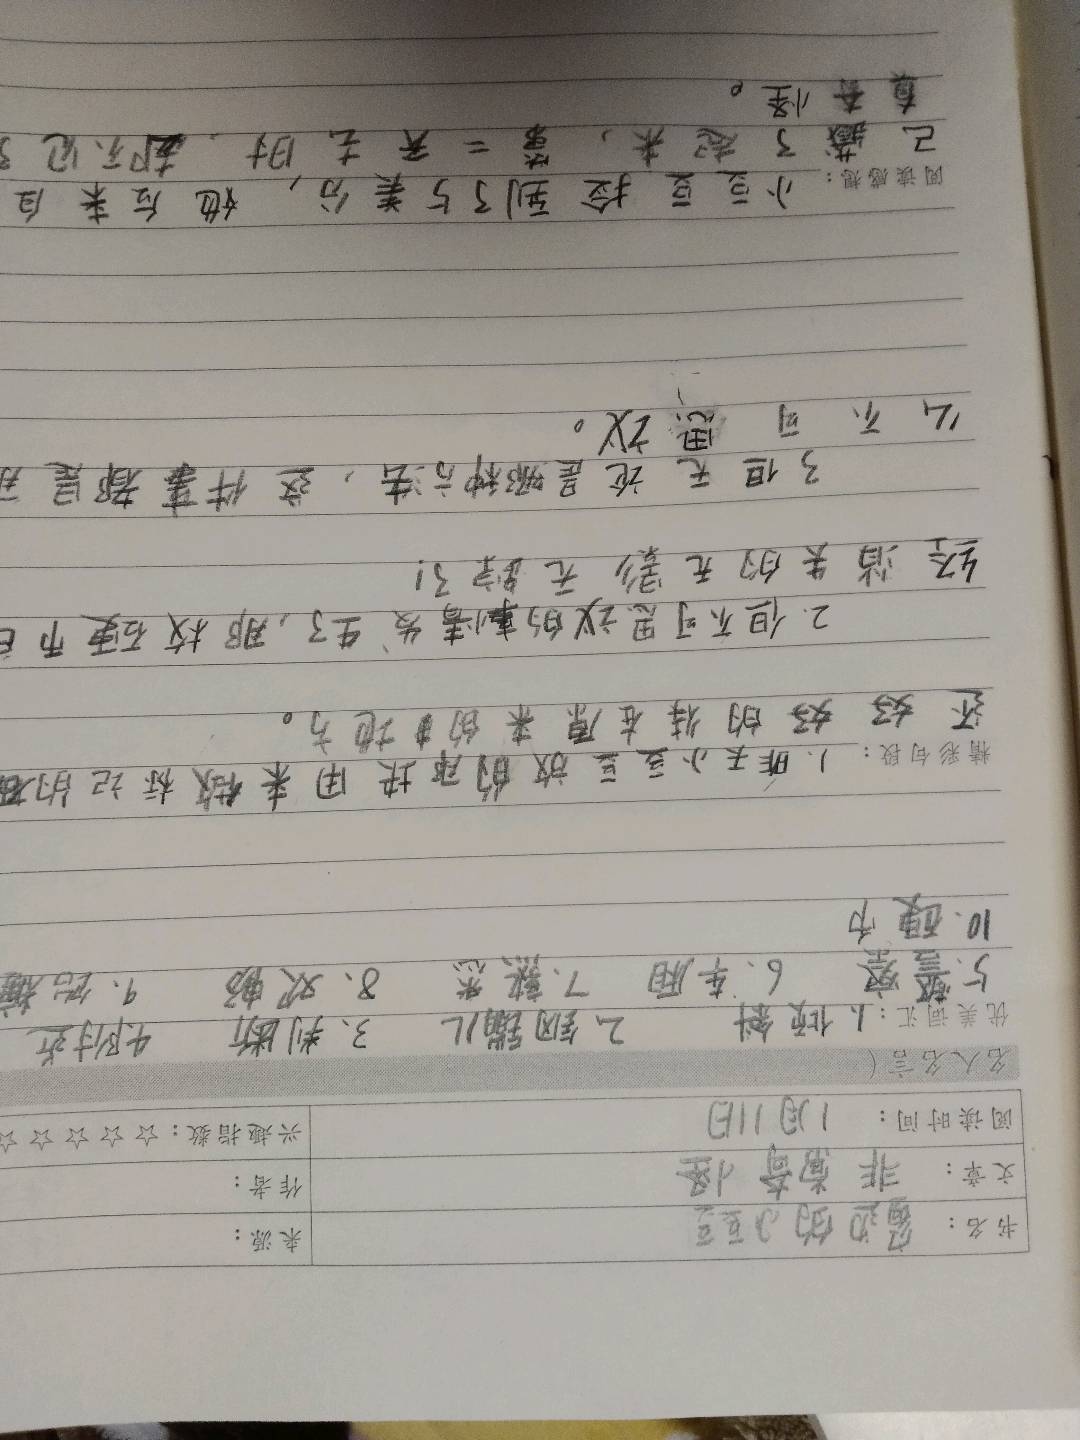 书名： 窗边的小豆豆 来源：
文章： 非常奇怪 作者：
阅读时间： 1月11日 兴趣指数：☆☆☆☆☆
名人名言（
优美词汇：1.倾斜 2.钢镚儿 3.判断 4.附近
5.警察 6.车厢 7.默 8.欢畅 9.
10.硬币
精彩句段：1.昨天小豆豆放的那块用来做标记的
还好好的待在原来的地方。
2.但不可思议的事情发生了，那枚硬币已
经消失的无影无踪了！
3但无论是哪种方法，这件事都是那
么不可思议。
阅读感想：小豆豆捡到了5美分，他后来自
己藏了起来，第二天去时，却不见了
真奇怪。